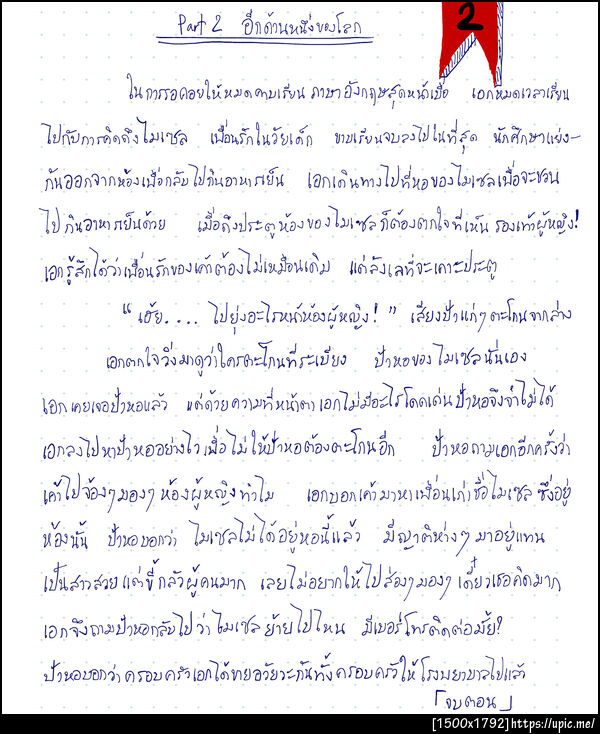 Part 2 อีกด้านหนึ่งของโลก
2
ในการรอคอยให้หมดคาบเรียน ภาษาอังกฤษสุดหน้าเบื่อ เอกหมดเวลาเรียน
ไปกับการคิดถึงไมเซล เพื่อนรักในวัยเด็ก คาบเรียนจบลงไปในที่สุด นักศึกษาแย่ง-
กันออกจากห้องเพื่อกลับไปกินอาหารเย็น เอกเดินทางไปที่หอของไมเซลเพื่อจะชวน
ไปกินอาหารเย็นด้วย เมื่อถึงประตูห้องของไมเซลก็ต้องตกใจที่เห็นรองเท้าผู้หญิง!
เอกรู้สึกได้ว่าเพื่อนรักของเค้าต้องไม่เหมือนเดิม แต่ลังเลที่จะเคาะประตู
"เฮ้ย.... ไปยุ่งอะไรหน้าห้องผู้หญิง!" เสียงป้าแก่ๆตะโกนจากล่าง
เอกตกใจวิ่งมาดูว่าใครตะโกนที่ระเบียง ป้าหอของไมเซลนั่นเอง
เอกเคยเจอป้าหอแล้ว แต่ด้วยความที่หน้าตาเอกไม่มีอะไรโดดเด่นป้าหอจึงจำไม่ได้
เอกลงไปหาป้าหออย่างไวเพื่อไม่ให้ป้าหอต้องตะโกนอีก ป้าหอถามเอกอีกครั้งว่า
เค้าไปจ้องๆมองๆ ห้องผู้หญิงทำไม เอกบอกเค้ามาหาเพื่อนเก่าชื่อไมเซล ซึ่งอยู่
ห้องนั้น ป้าหอบอกว่า ไมเซลไม่ได้อยู่หอนี้แล้ว มีญาติห่างๆมาอยู่แทน
เป็นสาวสวย แต่ขี้กลัวผู้คนมาก เลยไม่อยากให้ไปส่องๆมองๆ เดี๋ยวเธอคิดมาก
เอกจึงถามป้าหอกลับไปว่าไมเซลย้ายไปไหน มีเบอร์โทรติดต่อมั้ย?
ป้าหอบอกว่าครอบครัวเอกได้ขายอวัยวะกันทั้งครอบครัวให้โรงพยาบาลไปแล้ว
「จบตอน」
[1500x1792]https://upic.me/